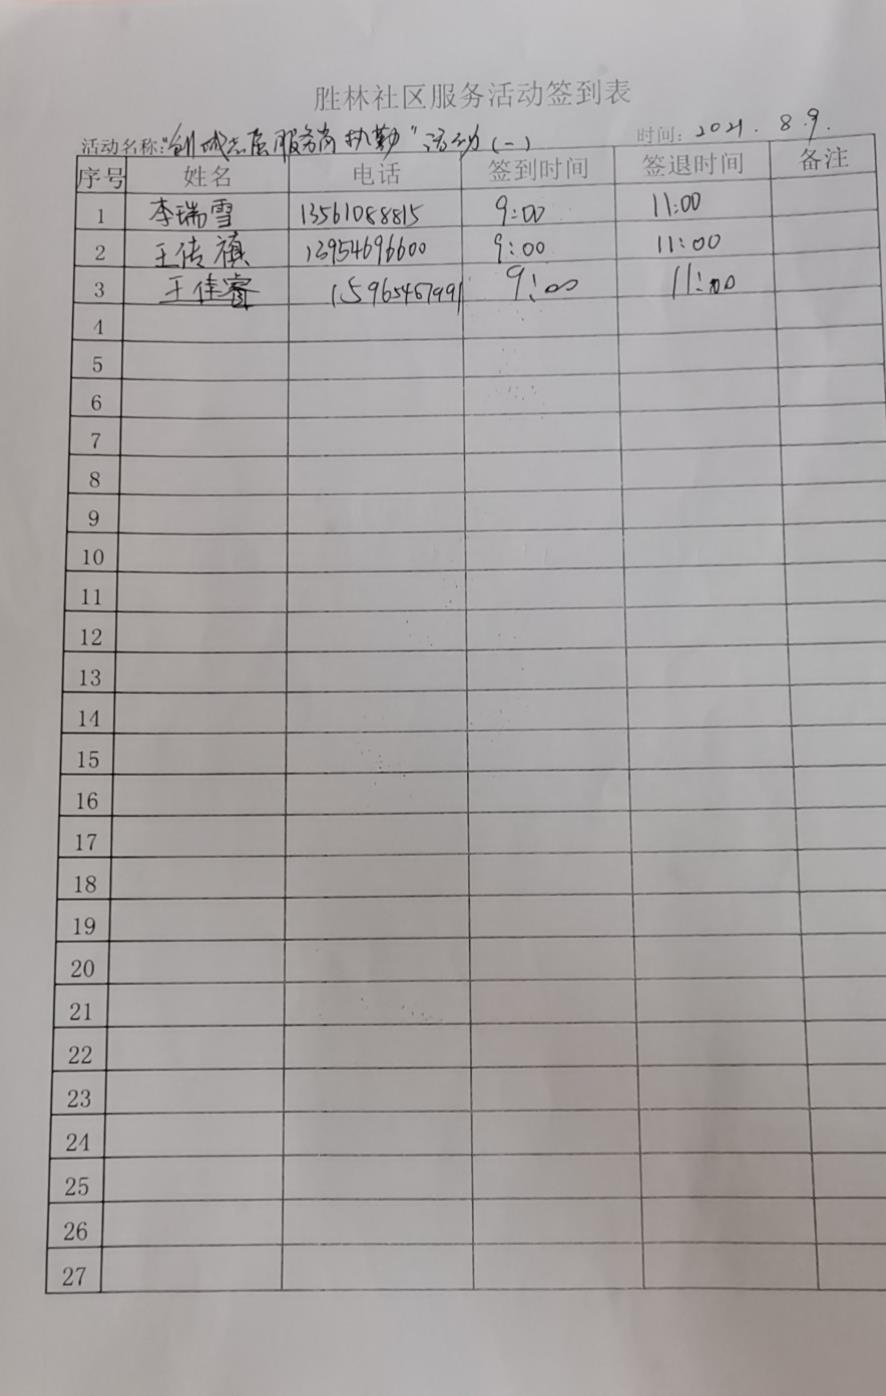 胜林社区服务活动签到表
活动名称:"创城志愿服务岗执勤"活动(一) 时间: 2021.8.9.
序号 姓名 电话 签到时间 签退时间 备注
1 李瑞雪 13561088815 9:00 11:00
2 王传禛 13954696600 9:00 11:00
3 王佳睿 15965467991 9:00 11:00
4
5
6
7
8
9
10
11
12
13
14
15
16
17
18
19
20
21
22
23
24
25
26
27